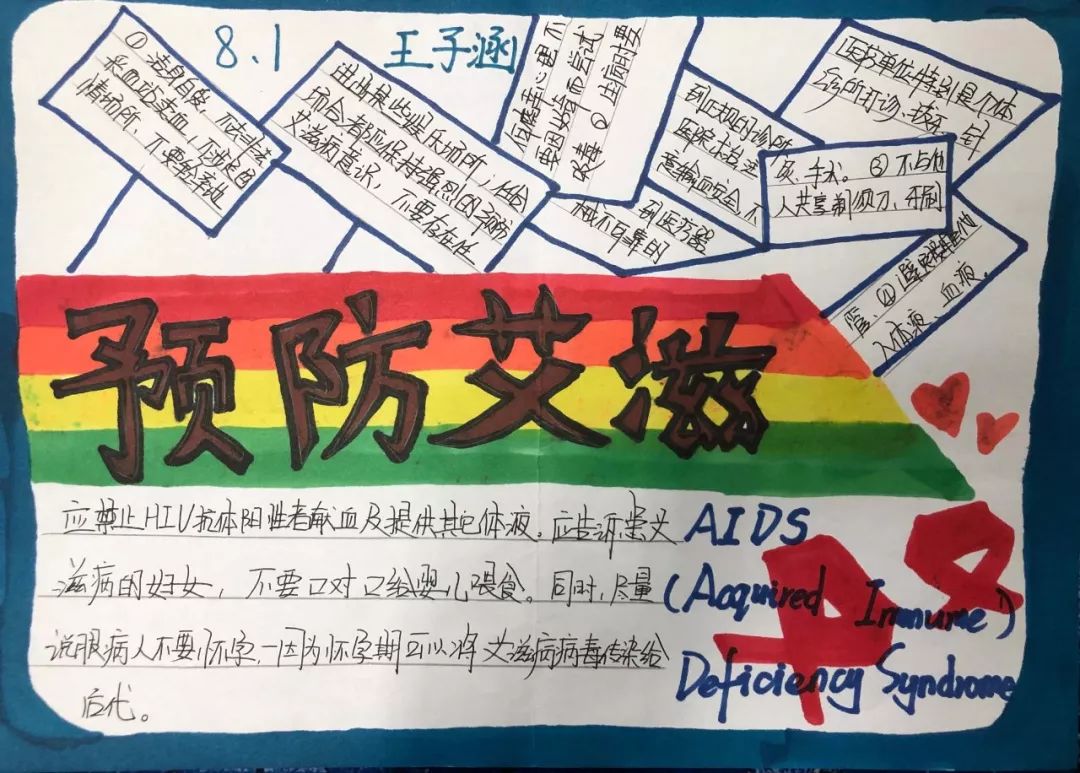 8.1 王子涵
①洁身自爱,不去非法
采血站卖血,不涉足色
情场所,不要轻率地
进出某些娱乐场所;任何
场合都应保持强烈的预防
艾滋病意识,不要存在任
何侥幸心理;不
要因好奇而尝试
吸毒②生病时要
到正规的诊所
医院求治,注
意输血安全,不
到医疗器
械不可靠的
医疗单位特别是个体
诊所打诊、拔牙、针
灸、手术。③不与他
人共享剃须刀、牙刷
管、④避免接触他
人体液、血液。
预防艾滋
应禁止HIV抗体阳性者献血及提供其它体液。应告诉患艾
滋病的妇女,不要口对口给婴儿喂食。同时,尽量
说服病人不要怀孕,因为怀孕期可以将艾滋病病毒传染给
后代。
AIDS
(Acquired Immune)
Deficiency Syndrome